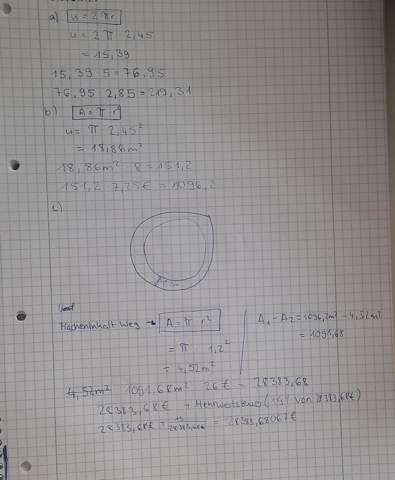 a) u = 2πr
u = 2π 2,45
= 15,39
15,39 5 = 76,95
76,95 2,85 = 219,31
b) A = π r²
u = π 2,45²
= 18,86m²
18,86m² 8 = 151,2
151,2 7,25€ = 1096,2
c)
Flächeninhalt Weg → A = π r²
= π 1,2²
= 4,52m²
A₁ - A₂ = 1096,2m² - 4,52m²
= 1091,68
4,52m² 1091,68m² 26€ = 28383,68
28383,68€ + Mehrwertsteuer (19% von 28383,68€)
28383,68€ + 19/28383,68€ = 28383,68067€